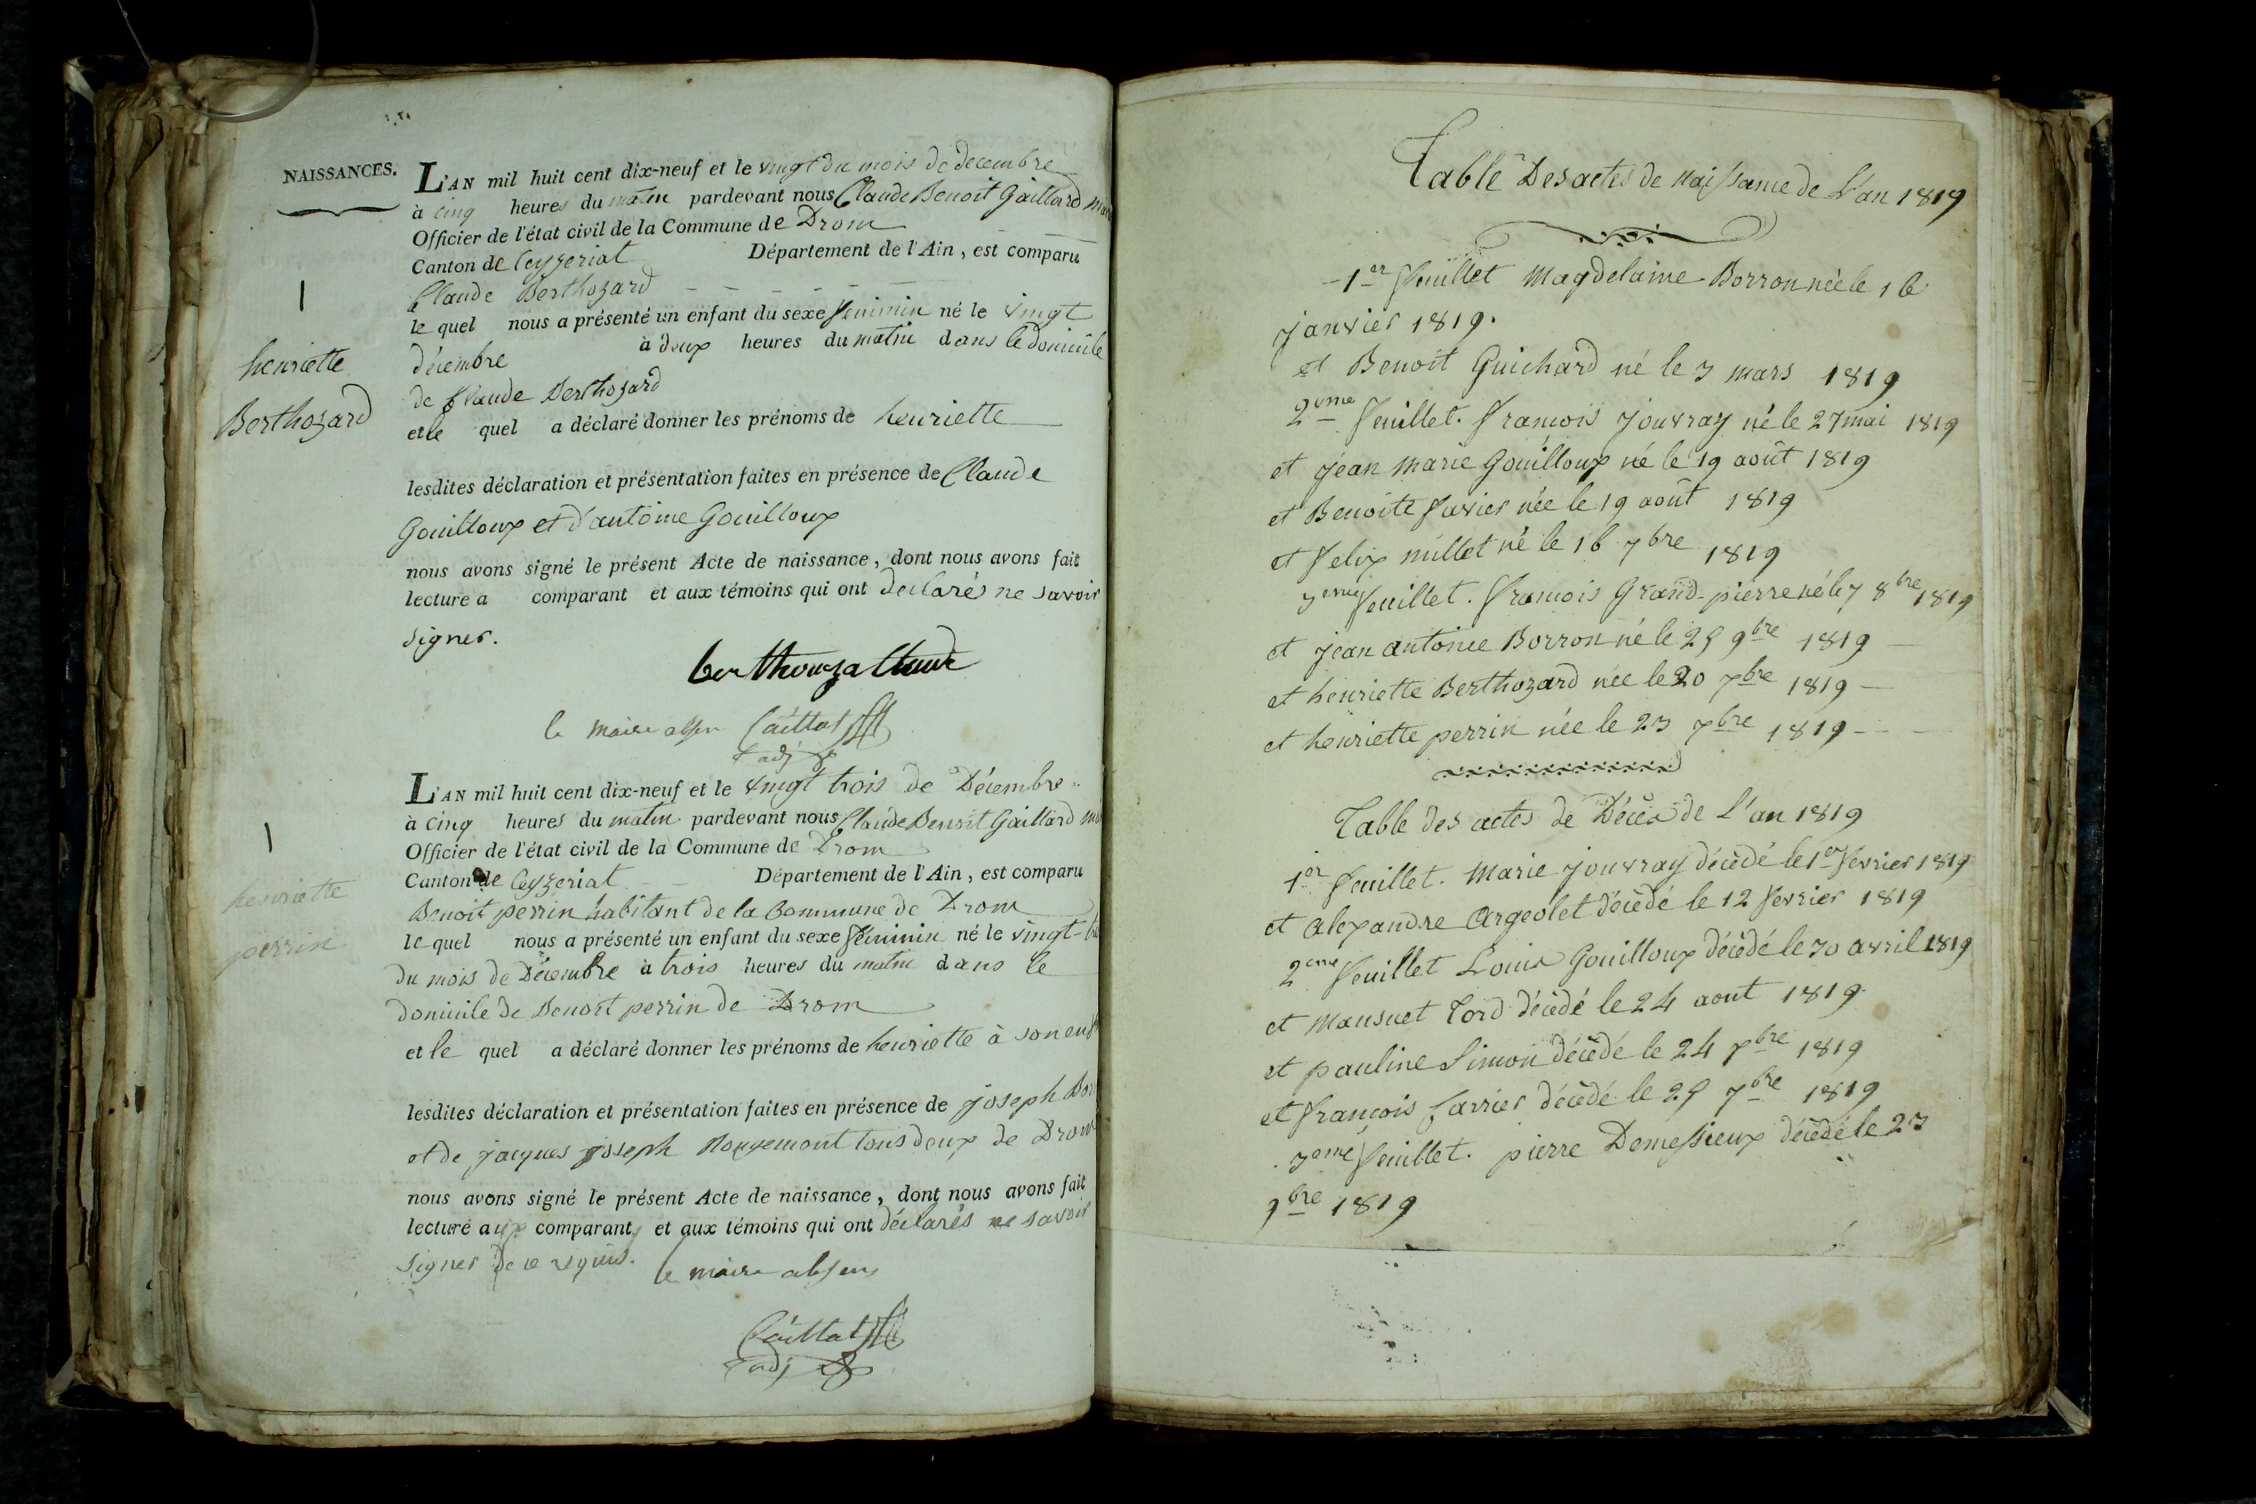 NAISSANCES.
L'AN mil huit cent dix-neuf et le vingt du mois de decembre
à cinq heures du matin pardevant nous Claude Benoit Gaillard
Officier de l'état civil de la Commune de Drom
Canton de Ceyzeriat Département de l'Ain, est comparu
Claude Berthozard
le quel nous a présenté un enfant du sexe feminin né le vingt
décembre à deux heures du matin dans le domicile
de Claude Berthozard
et le quel a déclaré donner les prénoms de henriette
lesdites déclaration et présentation faites en présence de Claude
Gouilloux et d'antoine Gouilloux
nous avons signé le présent Acte de naissance, dont nous avons fait
lecture a comparant et aux témoins qui ont declarés ne savoir
signer.
1
henriette
Berthozard
le maire absen
adj
L'AN mil huit cent dix-neuf et le vingt trois de Décembre
à cinq heures du matin pardevant nous Claude Benoit Gaillard
Officier de l'état civil de la Commune de Drom
Canton de Ceyzeriat Département de l'Ain, est comparu
Benoit perrin habitant de la Commune de Drom
le quel nous a présenté un enfant du sexe féminin né le vingt-
du mois de Décembre à trois heures du matin dans le
domicile de Benoit perrin de Drom
et le quel a déclaré donner les prénoms de henriette à son
lesdites déclaration et présentation faites en présence de joseph
et de jacques joseph Rougemont tous deux de Drom
nous avons signé le présent Acte de naissance, dont nous avons fait
lecture aux comparants et aux témoins qui ont déclarés ne savoir
signer de ce requis. le maire absens
adj
1
henriette
perrin
Table Des actes de Naissance de L'an 1819
1er feuillet Magdelaine Borron née le 16
janvier 1819.
et Benoit Guichard né le 3 mars 1819
2eme feuillet. francois jouvray né le 27 mai 1819
et jean marie Gouilloux né le 19 août 1819
et Benoite favier née le 19 août 1819
et felix millet né le 16 7bre 1819
3eme feuillet. francois Grand-pierre né le 7 8bre 1819
et jean antoine Borron né le 25 9bre 1819
et henriette Berthozard née le 20 xbre 1819
et henriette perrin née le 23 xbre 1819
Table des actes de Décès de L'an 1819
1er feuillet. Marie jouvray décédé le 1er fevrier 1819
et alexandre Argeolet décédé le 12 fevrier 1819
2eme feuillet Louis Gouilloux décédé le 30 avril 1819
et Mansuet Tord décédé le 24 aout 1819
et pauline Simon décédé le 24 7bre 1819
et francois favrier décédé le 25 7bre 1819
3eme feuillet. pierre Demessieux décédé le 23
9bre 1819